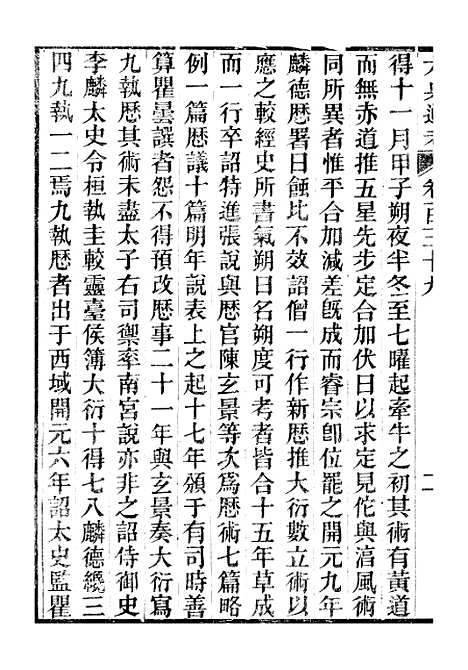 卷一百三十九
二
得十一月甲子朔夜半冬至七曜起牽牛之初其術有黃道
而無赤道推五星先步定合加伏日以求定見佗與淯風術
同所異者惟平合加減差旣成而睿宗卽位罷之開元九年
麟德歷署日蝕比不效詔僧一行作新歷推大衍數立術以
應之較經史所書氣朔日名朔度可考者皆合十五年草成
而一行卒詔特進張說與歷官陳玄景等次爲歷術七篇略
例一篇歷議十篇明年說表上之起十七年頒于有司時善
算瞿曇譔者怨不得預改歷事二十一年與玄景奏大衍寫
九執歷其術未盡太子右司禦率南宮說亦非之詔侍御史
李麟太史令桓執圭較靈臺侯簿大衍十得七八麟德纔三
四九執一二焉九執歷者出于西域開元六年詔太史監瞿